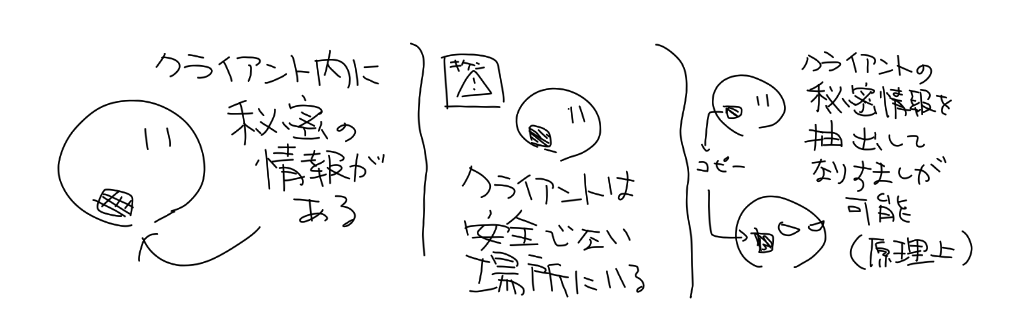 クライアント内に
秘密の
情報が
ある
キケン
クライアントは
安全でない
場所にいる
クライアントの
秘密情報を
抽出して
なりすましが
可能
(原理上)
コピー